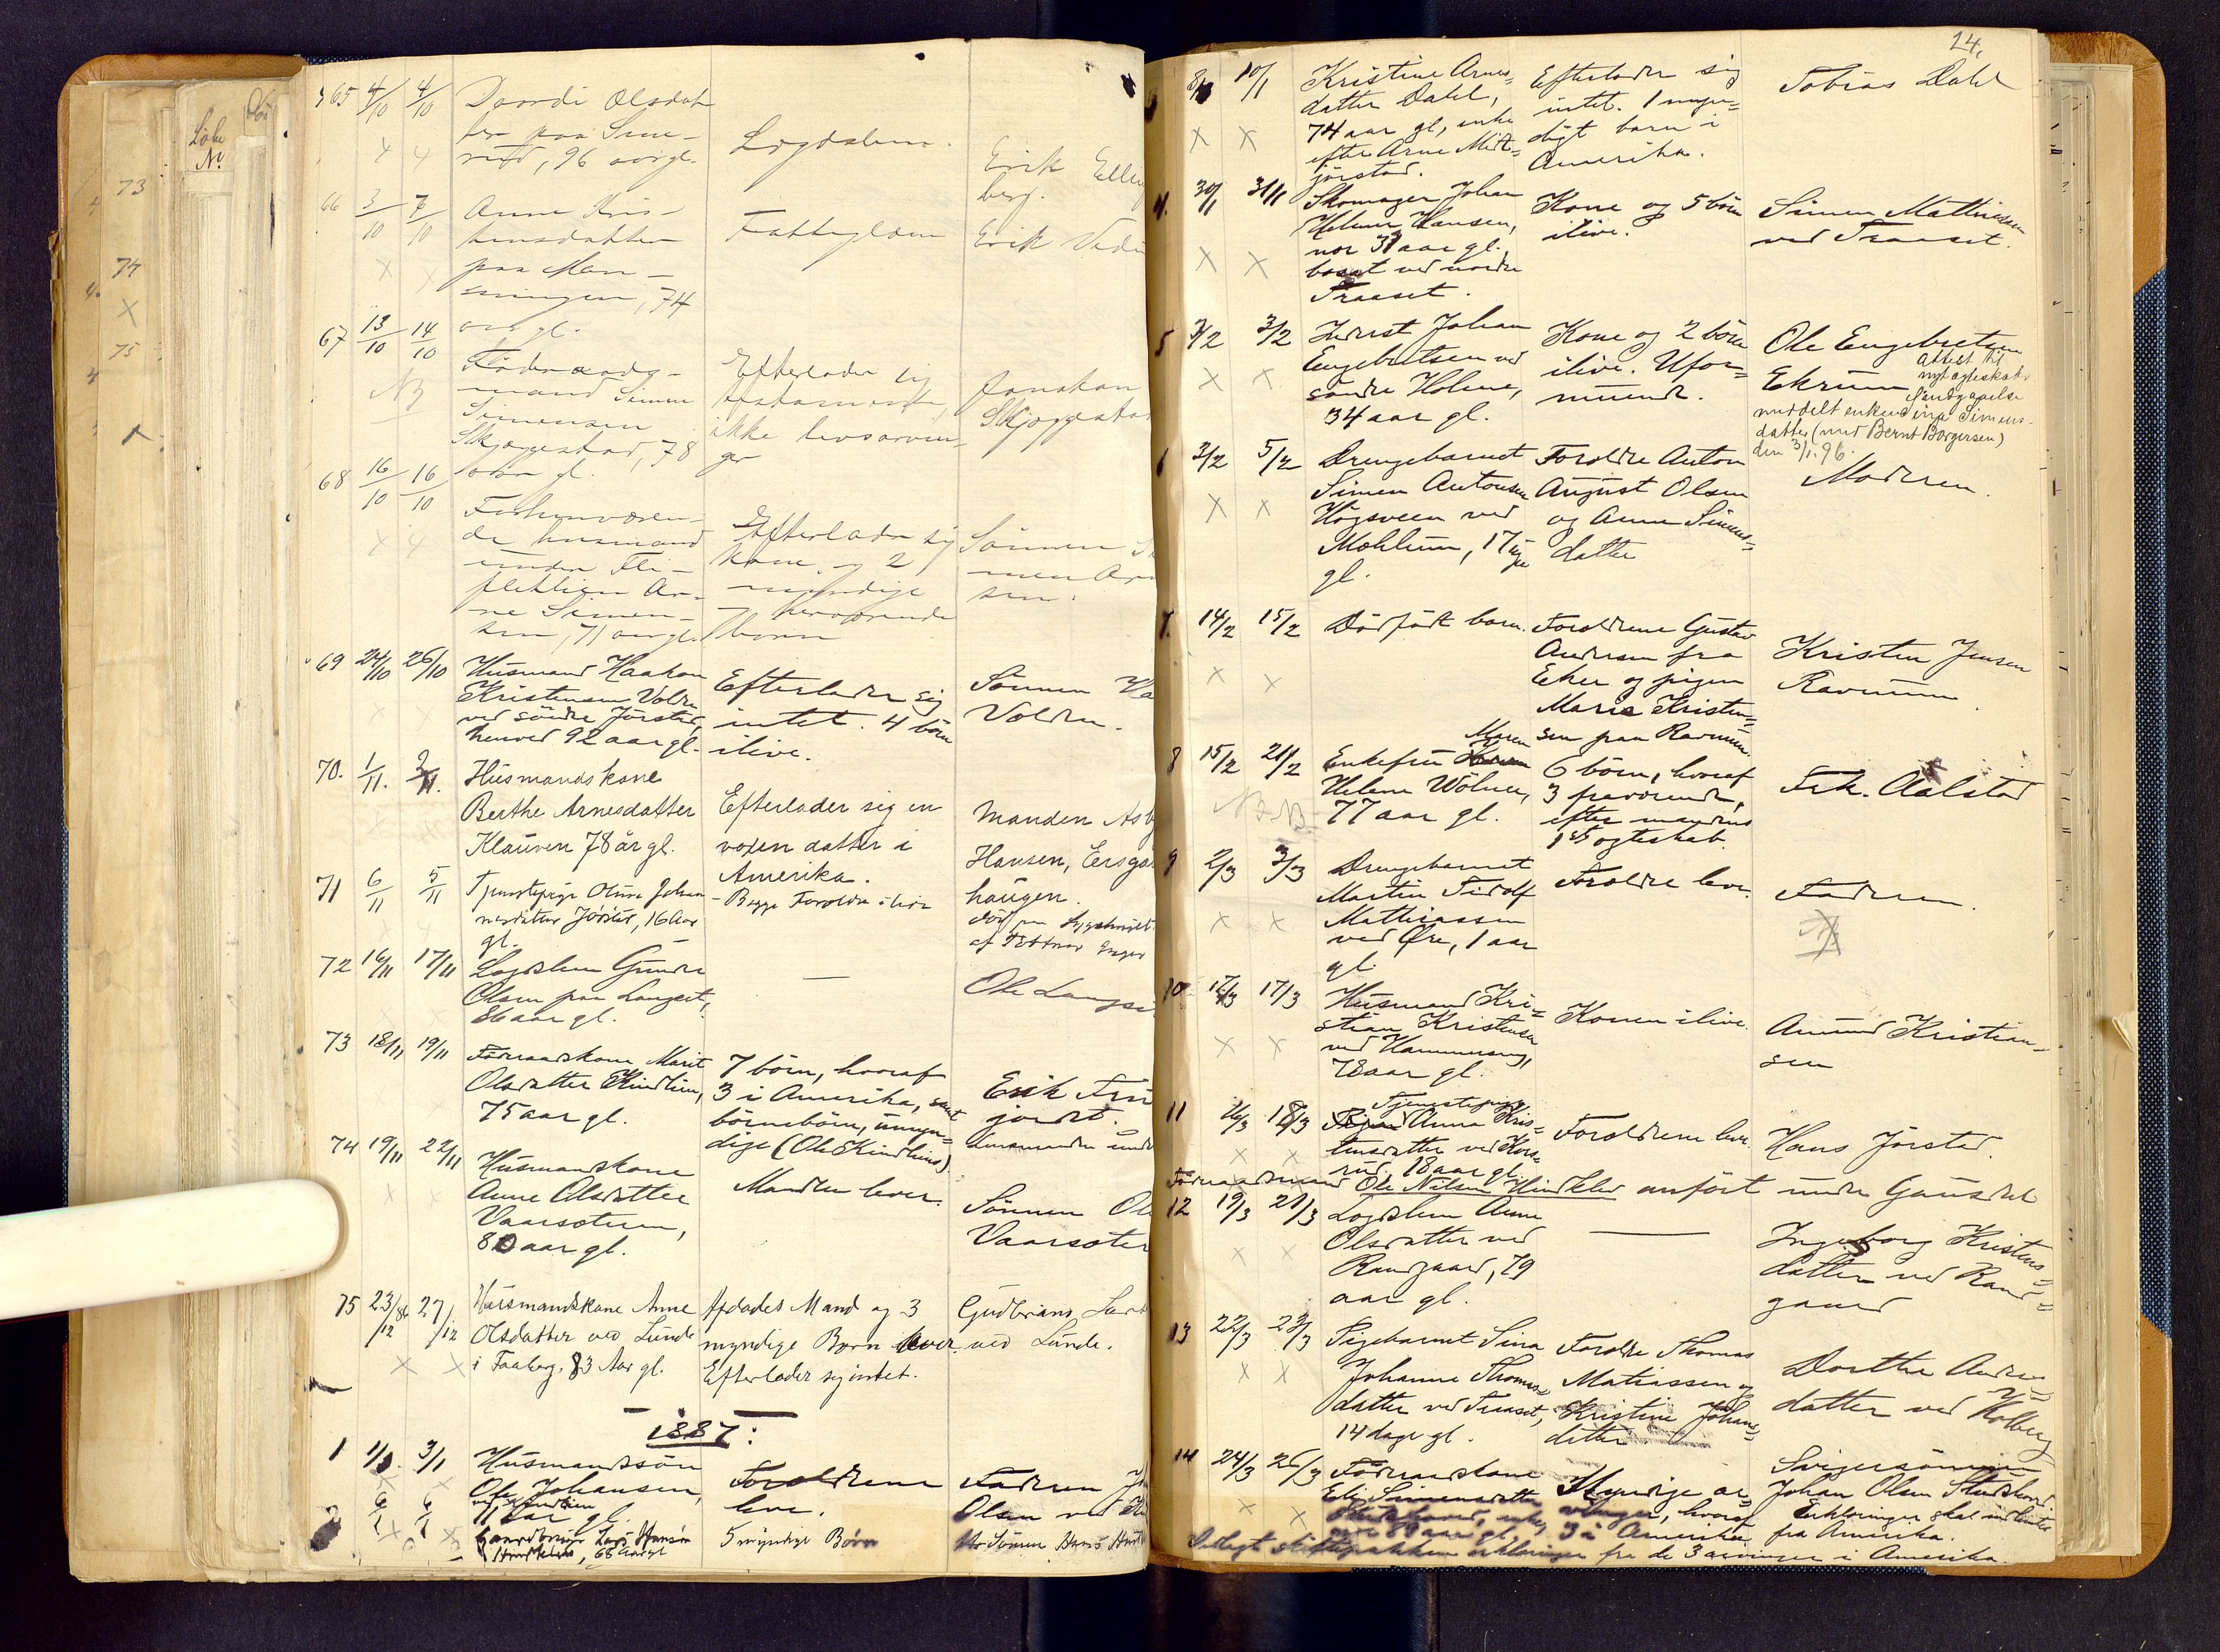 Løbe
No.
73
74
75
65 4/10 4/10 Dordi Olsdat
ter paa Sme-
rud, 96 aar gl.
Lægdslem.
Erik Elling
berg.
66 3/10 7/10 Anne Kris-
tensdatter
paa Mæn-
sningen, 74
aar gl.
Fattiglem
Erik
67 13/10 14/10 Føderaads-
mand Simen
Simensen
Skjæggestad, 78
aar gl.
NB
Efterlader sig
testament,
ikke livsarvin-
ger
Jonathan
Skjæggestad
68 16/10 16/10 Forhenværen-
de husmand
under Fli-
flethlien Ar-
ne Simen-
sen, 71 aar gl.
Efterlader sig
kone og 2
myndige
nærværende
børn
Sønnen
men Arne
sen.
69 24/10 26/10 Husmand Haakon
Kristensen Volden
ved søndre Jørstad,
henved 92 aar gl.
Efterlader sig
intet. 4 børn
ilive.
Sønnen
Volden.
70. 1/11. 2/11. Husmandskone
Berthe Arnesdatter
Klæuven 78 år gl.
Efterlader sig en
voxen datter i
Amerika.
Manden Asb
Hansen, Eersga
haugen.
71 6/11 5/11 Tjenestepige Olina Johan
nesdatter Jørstad, 16 Aar
gl.
Begge Forældre ilive
Død paa Sygehuset
72 16/11 17/11 Lægdslem Gunder
Olsen paa Langset,
86 aar gl.
Ole Langse
73 18/11 19/11 Føderaadskone Marit
Olsdatter Kindlien,
75 aar gl.
7 børn, hvoraf
3 i Amerika, samt
børnebørn, umyn=
dige (Ole Kindliens).
Erik
jordet.
husmand under
74 19/11 22/11 Husmandskone
Anne Olsdatter
Vaarsæteren,
80 aar gl.
Manden lever.
Sønnen Ole
Vaarsæter
75 23/12 86 27/12 Husmandskone Anne
Olsdatter ved Lunde
i Faaberg, 83 Aar gl.
Afdødes Mand og 3
myndige Børn lever.
Efterlader sig intet.
Gudbrand Lars
ved Lunde.
1887:
1 1/1. 3/1 Husmandssøn
Ole Johansen,
ved Kindlien
11 aar gl.
Forældrene
leve.
Faderen Joh
Olsen ved
2 6/1 6/1 Gaardbruger Lars Hansen
68 Aar gl
5 myndige Børn
Sønnen Hans
24.
8/1 10/1 Kristine Arnes=
datter Dahl,
74 aar gl, enke
efter Arne Midt=
jørstad.
Efterlader sig
intet. 1 myn=
digt barn i
Amerika.
Tobias Dahl
4. 30/1 31/1 Skomager Johan
Helmer Hansen,
nær 37 aar gl.
bosat ved nordre
Traaset.
Kone og 5 børn
ilive.
Simen Mathiassen
ved Traaset.
5 3/2 3/2 Inderst Johan
Engebretsen ved
søndre Holme,
34 aar gl.
Kone og 2 børn
ilive. Ufor=
muende.
Ole Engebretsen
Ekrum
Attest til
nyt ægteskabs
indgaaelse
meddelt enken Sina Simens-
datter (med Bernt Borgersen)
den 3/1. 96.
6 3/2 5/2 Drengebarnet
Simen Antonsen
Høgsveen ved
Mæhlum, 17 uger
gl.
Forældre Anton
August Olsen
og Anne Simens=
datter
Moderen.
7. 14/2 15/2 Dødfødt barn.
Forældrene Gustav
Andersen fra
Eker og pigen
Marie Kristen=
sen paa Ravnum.
Kristen Jensen
Ravnum
8 15/2 21/2 Enkefru Maren
Helene Wølner,
77 aar gl.
NB NB
6 børn, hvoraf
3 fraværende,
efter mandens
1ste ægteskab.
Frk. Aalstad
9 2/3 3/3 Drengebarnet
Martin Tidolf
Mathiassen
ved Øre, 1 aar
gl.
Forældre leve.
Faderen.
10. 12/3 17/3 Husmand Kri=
stian Kristensen
ved Hammeren,
78 aar gl.
Konen ilive.
Amund Kristian=
sen
11 16/3 18/3 Tjenestepige
Anna Kris=
tensdatter ved Kors=
rud. 18 aar gl.
Forældrene leve.
Hans Jørstad.
Føderaadsmand Ole Nilsen Hindklev anført under Gausdal
12 19/3 21/3 Lægdslem Anne
Olsdatter ved
Randgaard, 79
aar gl.
Ingeborg Kristens=
datter ved Rand=
gaard
13 22/3 23/3 Pigebarnet Sina
Johanne Thomas=
datter ved Traaset,
14 dage gl.
Forældre Thomas
Mathiassen og
Kristine Johans=
datter
Dorthe Anders=
datter ved Kolberg
14 24/3 26/3 Føderaadskone
Eli Simensdatter
Studshoved, enke,
over 80 aar gl.
Myndige ar=
vinger, hvoraf
3 i Amerika.
Svigersønnen
Johan Olsen Studshoved.
Erklæringer skal indhentes
fra Amerika.
Vedlagt skiftepakken erklæringer fra de 3 arvinger i Amerika.